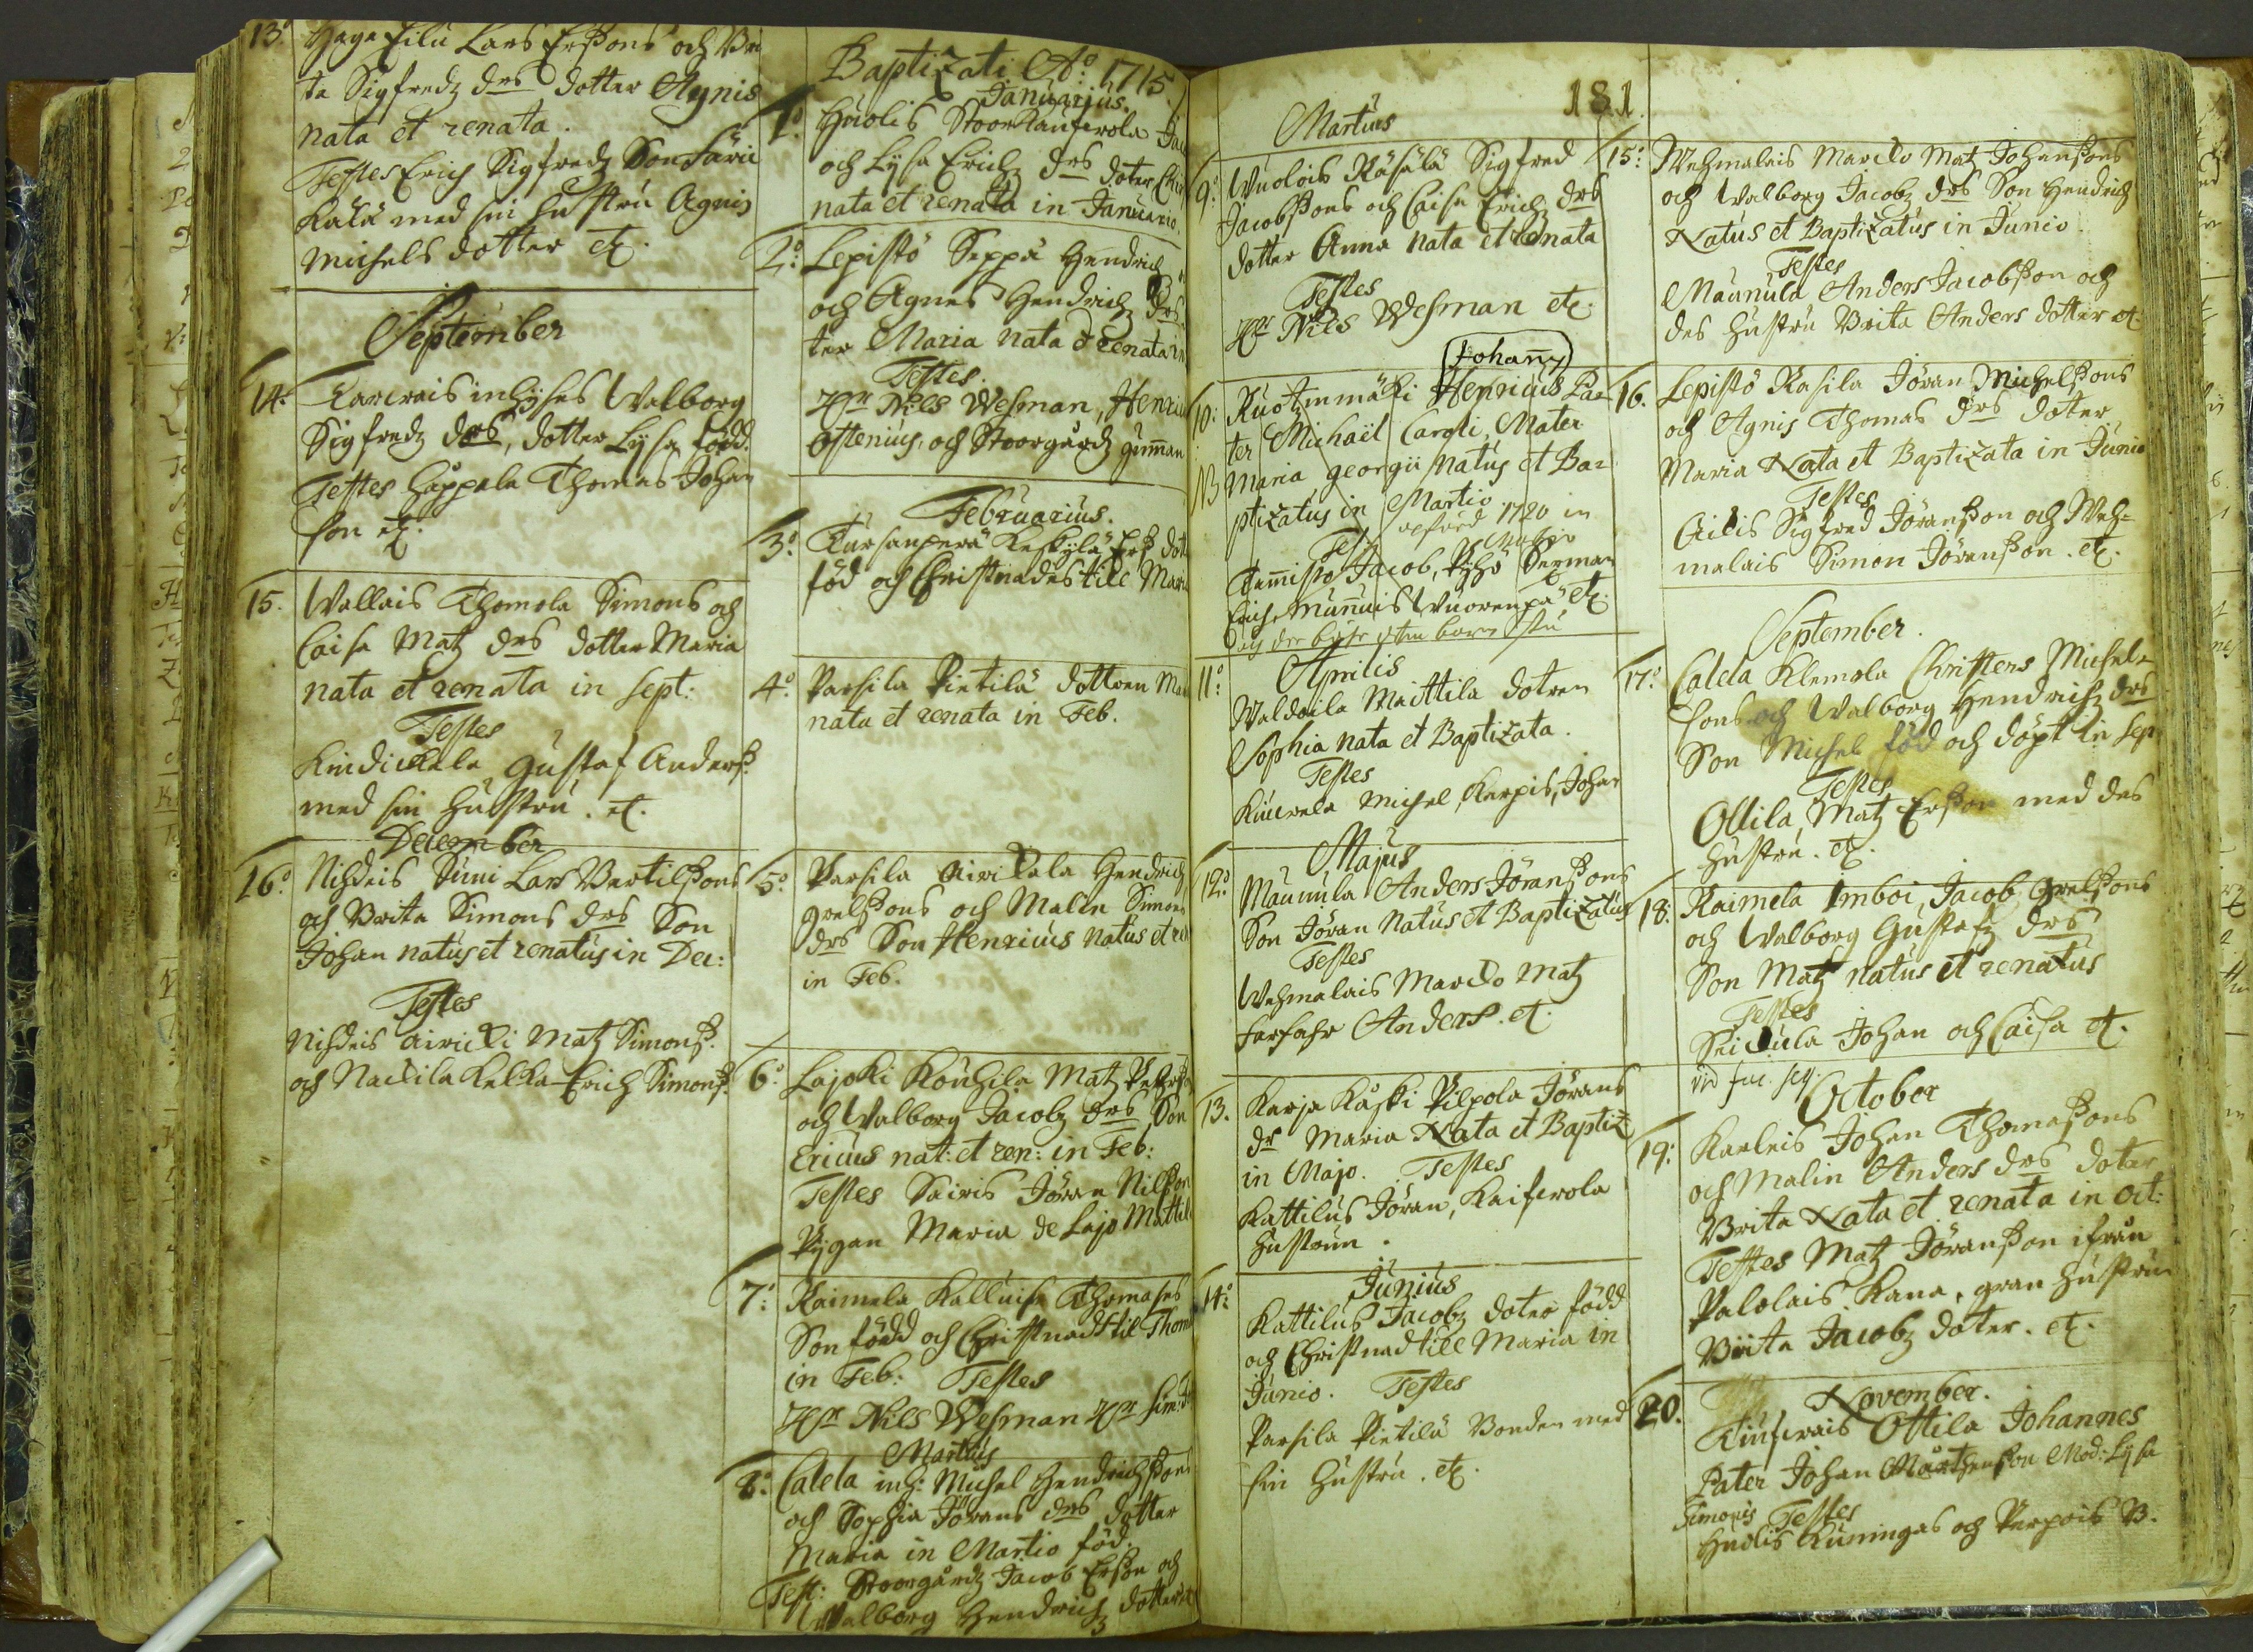 13:o Haga Eilu Lars Erßons och Bri
ta Sigfredz drs Dotter Agnis
nata et renata.
Testes Erich Sigfredz Son
Kålä med sin hustru Agnis
Michels dotter etc.
September
14: inhyses Walborg
Sigfredz drs, dotter Lysa född.
Testes Häppala Thomas Johan
son etc.
15. Wallais Thomola Simons och
Caisa Matz drs dotter Maria
nata et renata in Sept:
Testes
Gustaf Anderß:
med sin hustru. etc.
December
16:o Nihdeis Suni Lars Bertilßons
och Brita Simons drs Son
Johan natus et renatus in Dec:
Testes
Nihdeis Matz Simonß:
och Erich Simonß:
Baptizati Ao: 1715.
Januarius.
1:o Huolis
och Lysa Erichz drs doter
nata et renata in Januario.
2:o Lepistö Seppä Hendrich
och Agnes Hendrichz drs
ter Maria nata et renata in
Testes.
Hr Nils Wesman, Henric
Ostenius, och Stoorgårdz gumman
Februarius.
3:o Tursanperä Keskylä Erß dot
född och Christnades till Maria
4:o Parsila Pietilä dottren Ma
nata et renata in Feb.
5:o Parsila Hendrich
Grelßons och Malin Simons
drs Son Henricus natus et re
in Feb.
6:o Lajoki Kouhila Matz
och Walborg Jacobz drs Son
Ericus nat: et ren: in Feb:
Testes Sairis Jöran Nilßon
Pygan Maria de Lajo Mattil
7:o Raimela Kalluisu Thomases
Son född och Christnadt til Thom
in Feb: Testes
Hr Nils Wesman Hr Sim:
Martius
8:o Calela inh: Michel Hendrichßons
och Sophia Jörans drs dotter
Maria in Martio föd.
Test: Stoorgårdz Jacob Erßon och
Walborg Hendrichz dotter
181.
Martius
9:o Wuolois Räsälä Sigfred
Jacobßons och Caisa Erichz drs
dotter Anna nata et renata
Testes
Hr Nils Wesman etc.
Johann
10: Kuotzinmäki Henricus Pa=
ter Michaël Caroli, Mater
NB Maria Georgii natus et Ba=
ptizatus in Martio
1720 in
Tes
Tammisto Jacob, Pyhö Herman
Erich, Wuorenpä etc.
11:o Aprilis
Waldoila Maittila dotren
Sophia nata et Baptizata.
Testes
Michel, Karpis, Johan
Majus
12:o Maunula Anders Jöranßons
Son Jöran Natus et Baptizatus
Testes
Wehmalais Marcko Matz
Farfahr Anders. etc.
13. Karja Kåski Pilpola Jörans
dr Maria Nata et Baptiz
in Majo. Testes
Kattilus Jöran, Kaiserola
hustrun.
Junius
14:o Kattilus Jacobz doter född
och Christnad till Maria in
Junio. Testes
Parsila Pietilä Bonden med
sin hustru. etc.
15: Wehmalais Marcko Matz Johanßons
och Walborg Jacobz drs Son Hendrich
Natus et Baptizatus in Junio.
Testes
Maunula Anders Jacobßon och
des hustru Brita Anders dotter etc
16. Lepistö Rasila Jöran Michelßons
och Agnis Thomas drs doter
Maria Nata et Baptizata in Junio
Testes
Sigfred Jöranßon och Weh=
malais Simon Jöranßon. etc.
September.
17:o Calela Klemola Christers Michel=
sons och Walborg Hendrichz drs
Son Michel föd och döpt in Sep
Testes
Ollila, Matz Erßon med des
hustru. etc.
18: Raimela Imboi, Jacob Grelßons
och Walborg Gustafz drs
Son Matz natus et renatus
Testes
Johan och Caisa etc.
October
19: Karleis Johan Thomaßons
och Malin Anders drs doter
Brita Nata et renata in Oct:
Testes Matz Jöranßon ifrån
Palolais Kana, gran hustrun
Brita Jacobz doter. etc.
November.
20. Ottila Johannes
Pater Johan Mårthenßon Mod: Lysa
Simonis Testes
Huolis Kuningas och Perpois B.